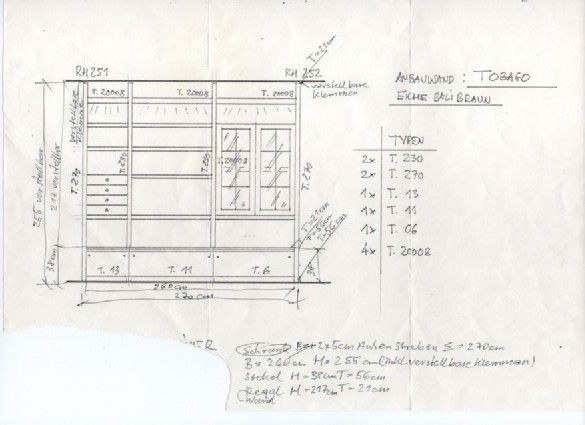 T=21cm
RH 251
RH 252
ANBAUWAND : TOBAGO
EICHE BALI BRAUN
verstellbare
Klemmen
T. 20008
T. 20008
T. 20008
T. 20008
verstellbare
T. 230
T. 230
T. 270
T. 270
255 verstellbar
217 verstellbar
38cm
T=21cm
T=56cm
38
T. 13
T. 11
T. 6
260cm
270cm
TYPEN
2x T. 230
2x T. 270
1x T. 13
1x T. 11
1x T. 06
4x T. 20008
Schrank
2x5cm Außen Streben Σ = 270cm
B = 260cm H = 255 cm (inkl. verstellbare Klemmen!
Sockel H = 38cm T = 56cm
Regal H = 217cm T = 21cm
Wand